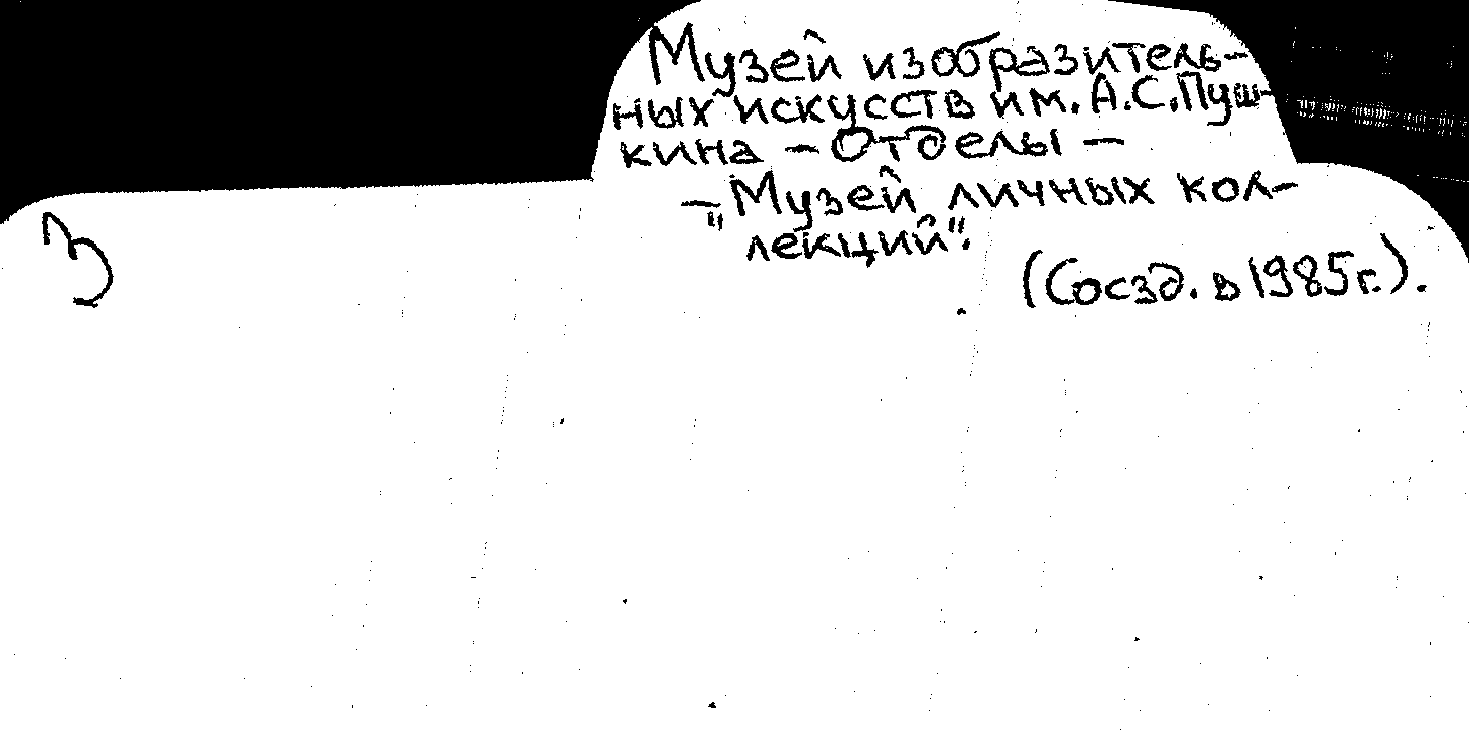 Музей изобразитель-
ных искусств им. А.С.Пуш-
кина – Отделы –
– „Музей личных кол-
лекций“.
(Созд. в 1985 г.).
З